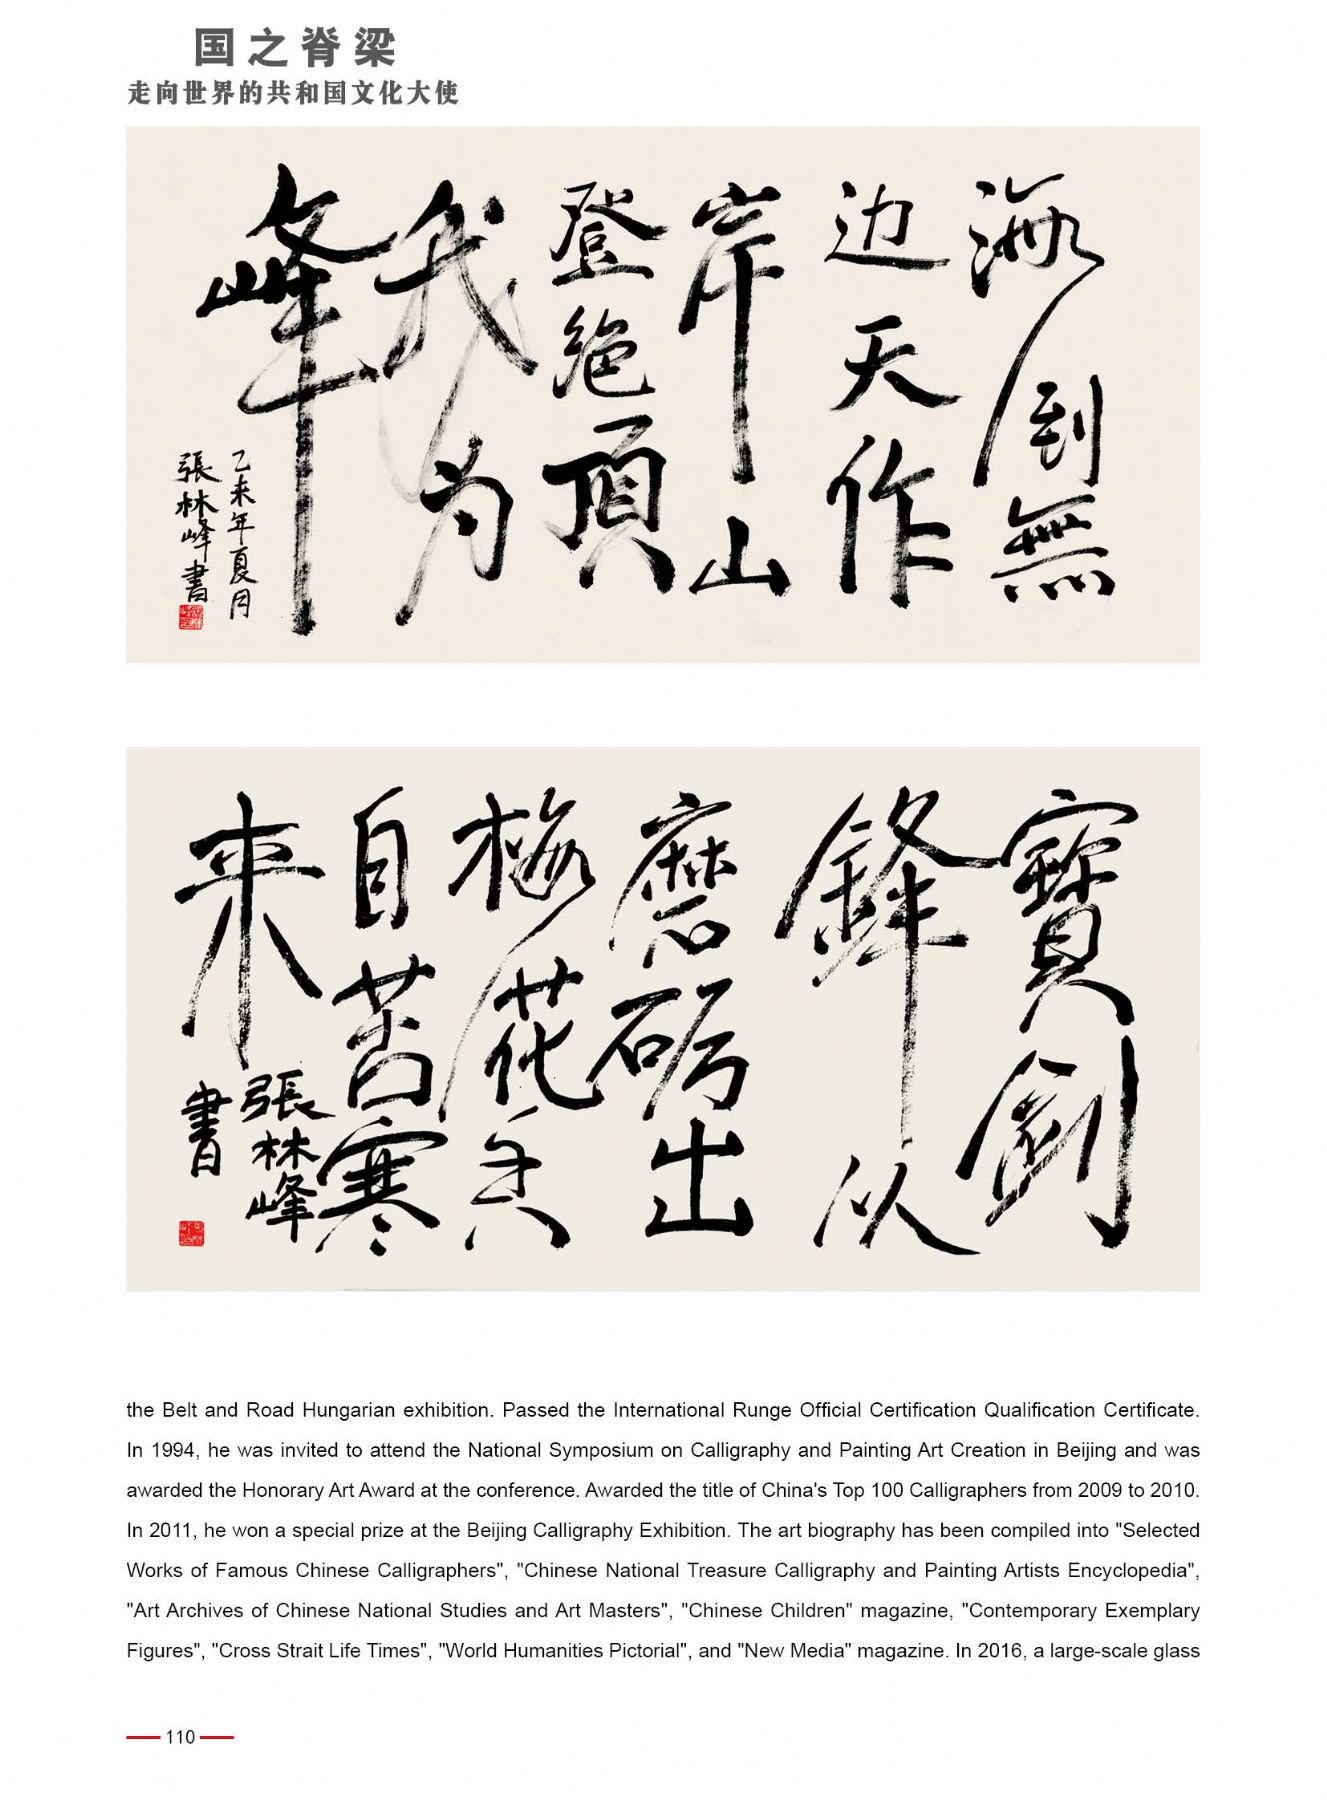 国之脊梁
走向世界的共和国文化大使
海到無
边天作
岸山
登絕頂
我为
峰
乙未年夏月
張林峰書
寶劍
鋒从
磨砺出
梅花香
自苦寒
来
張林峰
書
the Belt and Road Hungarian exhibition. Passed the International Runge Official Certification Qualification Certificate.
In 1994, he was invited to attend the National Symposium on Calligraphy and Painting Art Creation in Beijing and was
awarded the Honorary Art Award at the conference. Awarded the title of China's Top 100 Calligraphers from 2009 to 2010.
In 2011, he won a special prize at the Beijing Calligraphy Exhibition. The art biography has been compiled into "Selected
Works of Famous Chinese Calligraphers", "Chinese National Treasure Calligraphy and Painting Artists Encyclopedia",
"Art Archives of Chinese National Studies and Art Masters", "Chinese Children" magazine, "Contemporary Exemplary
Figures", "Cross Strait Life Times", "World Humanities Pictorial", and "New Media" magazine. In 2016, a large-scale glass
110